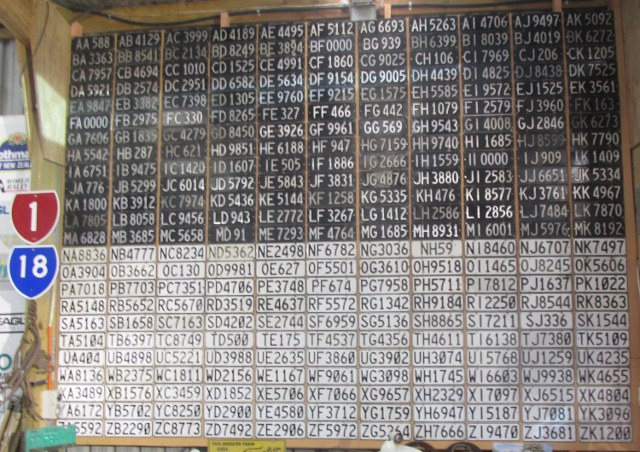 AA 588 AB 4129 AC 3999 AD 4189 AE 4495 AF 5112 AG 6693 AH 5263 AI 4706 AJ 9497 AK 5092
BA 3363 BB 8541 BC 2134 BD 8249 BE 3894 BF 0000 BG 939 BH 6399 BI 8039 BJ 4019 BK 6272
CA 7957 CB 4694 CC 1010 CD 1525 CE 4991 CF 1860 CG 9025 CH 106 CI 7969 CJ 206 CK 1205
DA 5921 DB 2574 DC 2951 DD 6582 DE 5634 DF 9154 DG 9005 DH 4439 DI 4825 DJ 8438 DK 7525
EA 9847 EB 3382 EC 7398 ED 1305 EE 9760 EF 9215 EG 1575 EH 5585 EI 9572 EJ 1525 EK 3561
FA 0000 FB 2975 FC 330 FD 8265 FE 327 FF 466 FG 442 FH 1079 FI 2579 FJ 3960 FK 163
GA 7606 GB 1835 GC 4279 GD 8450 GE 3926 GF 9961 GG 569 GH 9543 GI 4008 GJ 2846 GK 6273
HA 5542 HB 287 HC 621 HD 9851 HE 6188 HF 947 HG 7159 HH 9740 HI 1685 HK 7790
IA 6751 IB 9475 IC 1120 ID 1607 IE 505 IF 1886 IG 2666 IH 1559 II 0000 IJ 909 IK 1409
JA 776 JB 5299 JC 6014 JD 5792 JE 5843 JF 3831 JG 4876 JH 3880 JI 2583 JJ 6651 JK 5334
KA 1800 KB 3912 KC 7974 KD 5436 KE 5144 KF 1258 KG 5335 KH 476 KI 8577 KJ 3761 KK 4967
LA 7805 LB 8058 LC 9456 LD 943 LE 2772 LF 3267 LG 1412 LH 2586 LI 2856 LJ 7484 LK 7870
MA 6828 MB 3685 MC 5658 MD 91 ME 7293 MF 4764 MG 1685 MH 8931 MI 6001 MJ 5976 MK 8192
NA8836 NB4777 NC8234 ND5362 NE2498 NF6782 NG3036 NH59 NI8460 NJ6707 NK7497
OA3904 OB3662 OC130 OD9981 OE627 OF5501 OG3610 OH9518 OI1465 OJ8245 OK5606
PA7018 PB7703 PC7351 PD4706 PE3748 PF674 PG7958 PH5711 PI7812 PJ1637 PK1022
RA5148 RB5652 RC5670 RD3519 RE4637 RF5572 RG1342 RH9184 RI2250 RJ8544 RK8363
SA5163 SB1658 SC7163 SD4202 SE2744 SF6959 SG5136 SH8865 SI7211 SJ336 SK1544
TA5104 TB6397 TC8749 TD500 TE175 TF4537 TG4356 TH4611 TI6138 TJ7380 TK5109
UA404 UB4898 UC5221 UD3988 UE2635 UF3860 UG3902 UH3074 UI5768 UJ1259 UK4235
WA8136 WB2375 WC1811 WD2156 WE1167 WF9061 WG3098 WH1745 WI6603 WJ9938 WK4655
XA3489 XB1576 XC3459 XD1852 XE5706 XF7066 XG9657 XH2329 XI7097 XJ6515 XK4800
YA6172 YB5702 YC8250 YD2900 YE4580 YF3712 YG1759 YH6947 YI5187 YJ7081 YK3096
ZA5592 ZB2290 ZC8773 ZD7492 ZE2906 ZF5972 ZG5264 ZH7666 ZI9470 ZJ3681 ZK1200
1
18